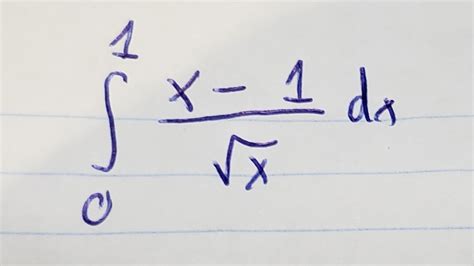 ∫₀¹ (x - 1)/√x dx